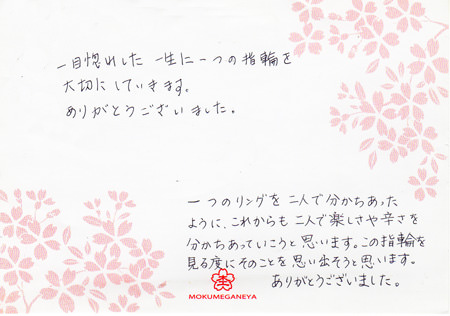 一目惚れした 一生に一つの指輪を
大切にしていきます。
ありがとうございました。
一つのリングを 二人で分かちあった
ように、これからも 二人で楽しさや辛さを
分かちあっていこうと思います。この指輪を
見る度にそのことを 思い出そうと思います。
ありがとうございました。
MOKUMEGANEYA